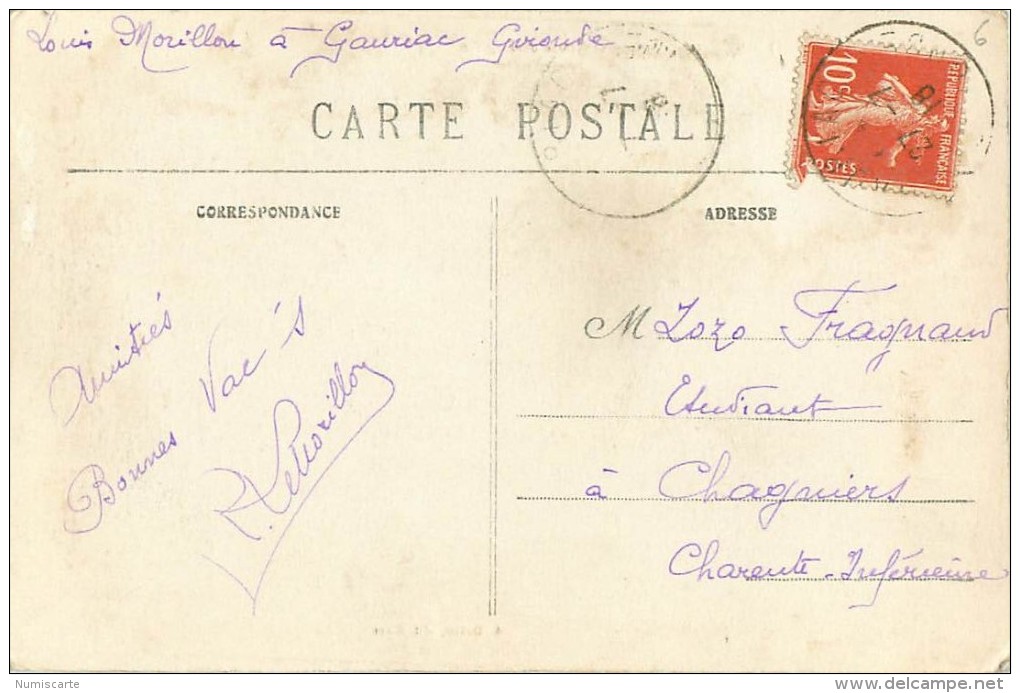 Louis Morillon à Gauriac Gironde
6
CARTE POSTALE
10c
REPUBLIQUE FRANÇAISE
POSTES
CORRESPONDANCE
ADRESSE
Amitiés
Bonnes Vac's
M Zozo Fragnaud
Etudiant
à Chagniers
Charente-Inférieure
Numiscarte
delcampe.net